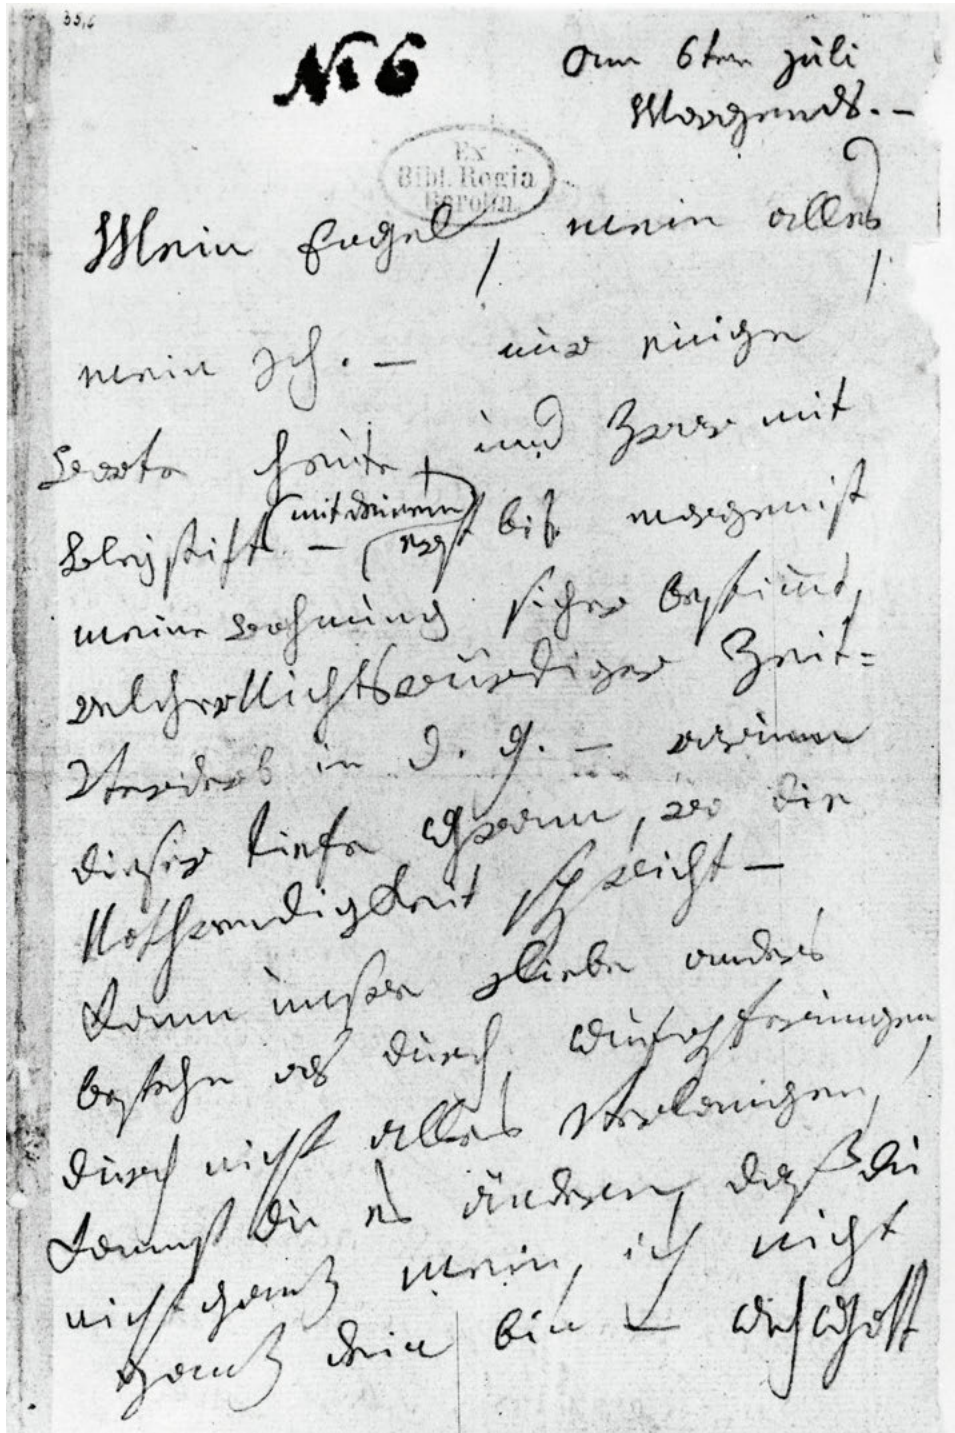 33,6
No 6
am 6ten Juli
Morgends. –
Ex
Bibl. Regia
Berolin.
Mein Engel, mein alles,
mein Ich. – nur einige
Worte heute, und zwar mit
Bleystift – (mit deinem) erst bis morgen ist
meine Wohnung sicher bestimmt,
welcher Nichtswürdiger Zeit=
Verderb in d. g. – warum
dieser tiefe Gram, wo die
Nothwendigkeit spricht –
Kann unsre Liebe anders
bestehn als durch Aufopferungen,
durch nicht alles Verlangen,
kannst du es ändern, daß du
nicht ganz mein, ich nicht
ganz dein bin – Ach Gott